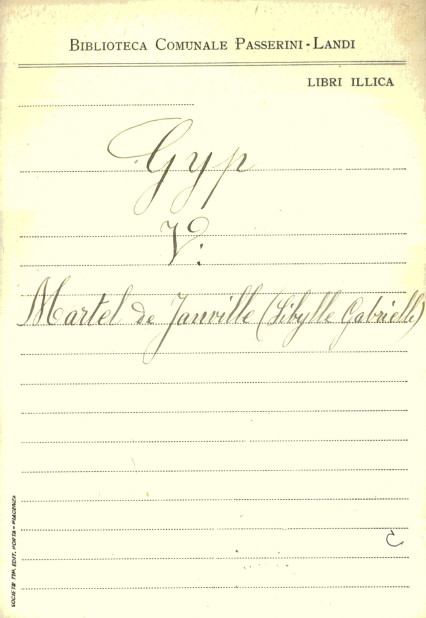 BIBLIOTECA COMUNALE PASSERINI-LANDI
LIBRI ILLICA
Gyp
V:
Martel de Janville (Sibylle Gabrielle)
SOCIETÀ TIP. EDIT. PORTA - PIACENZA
C